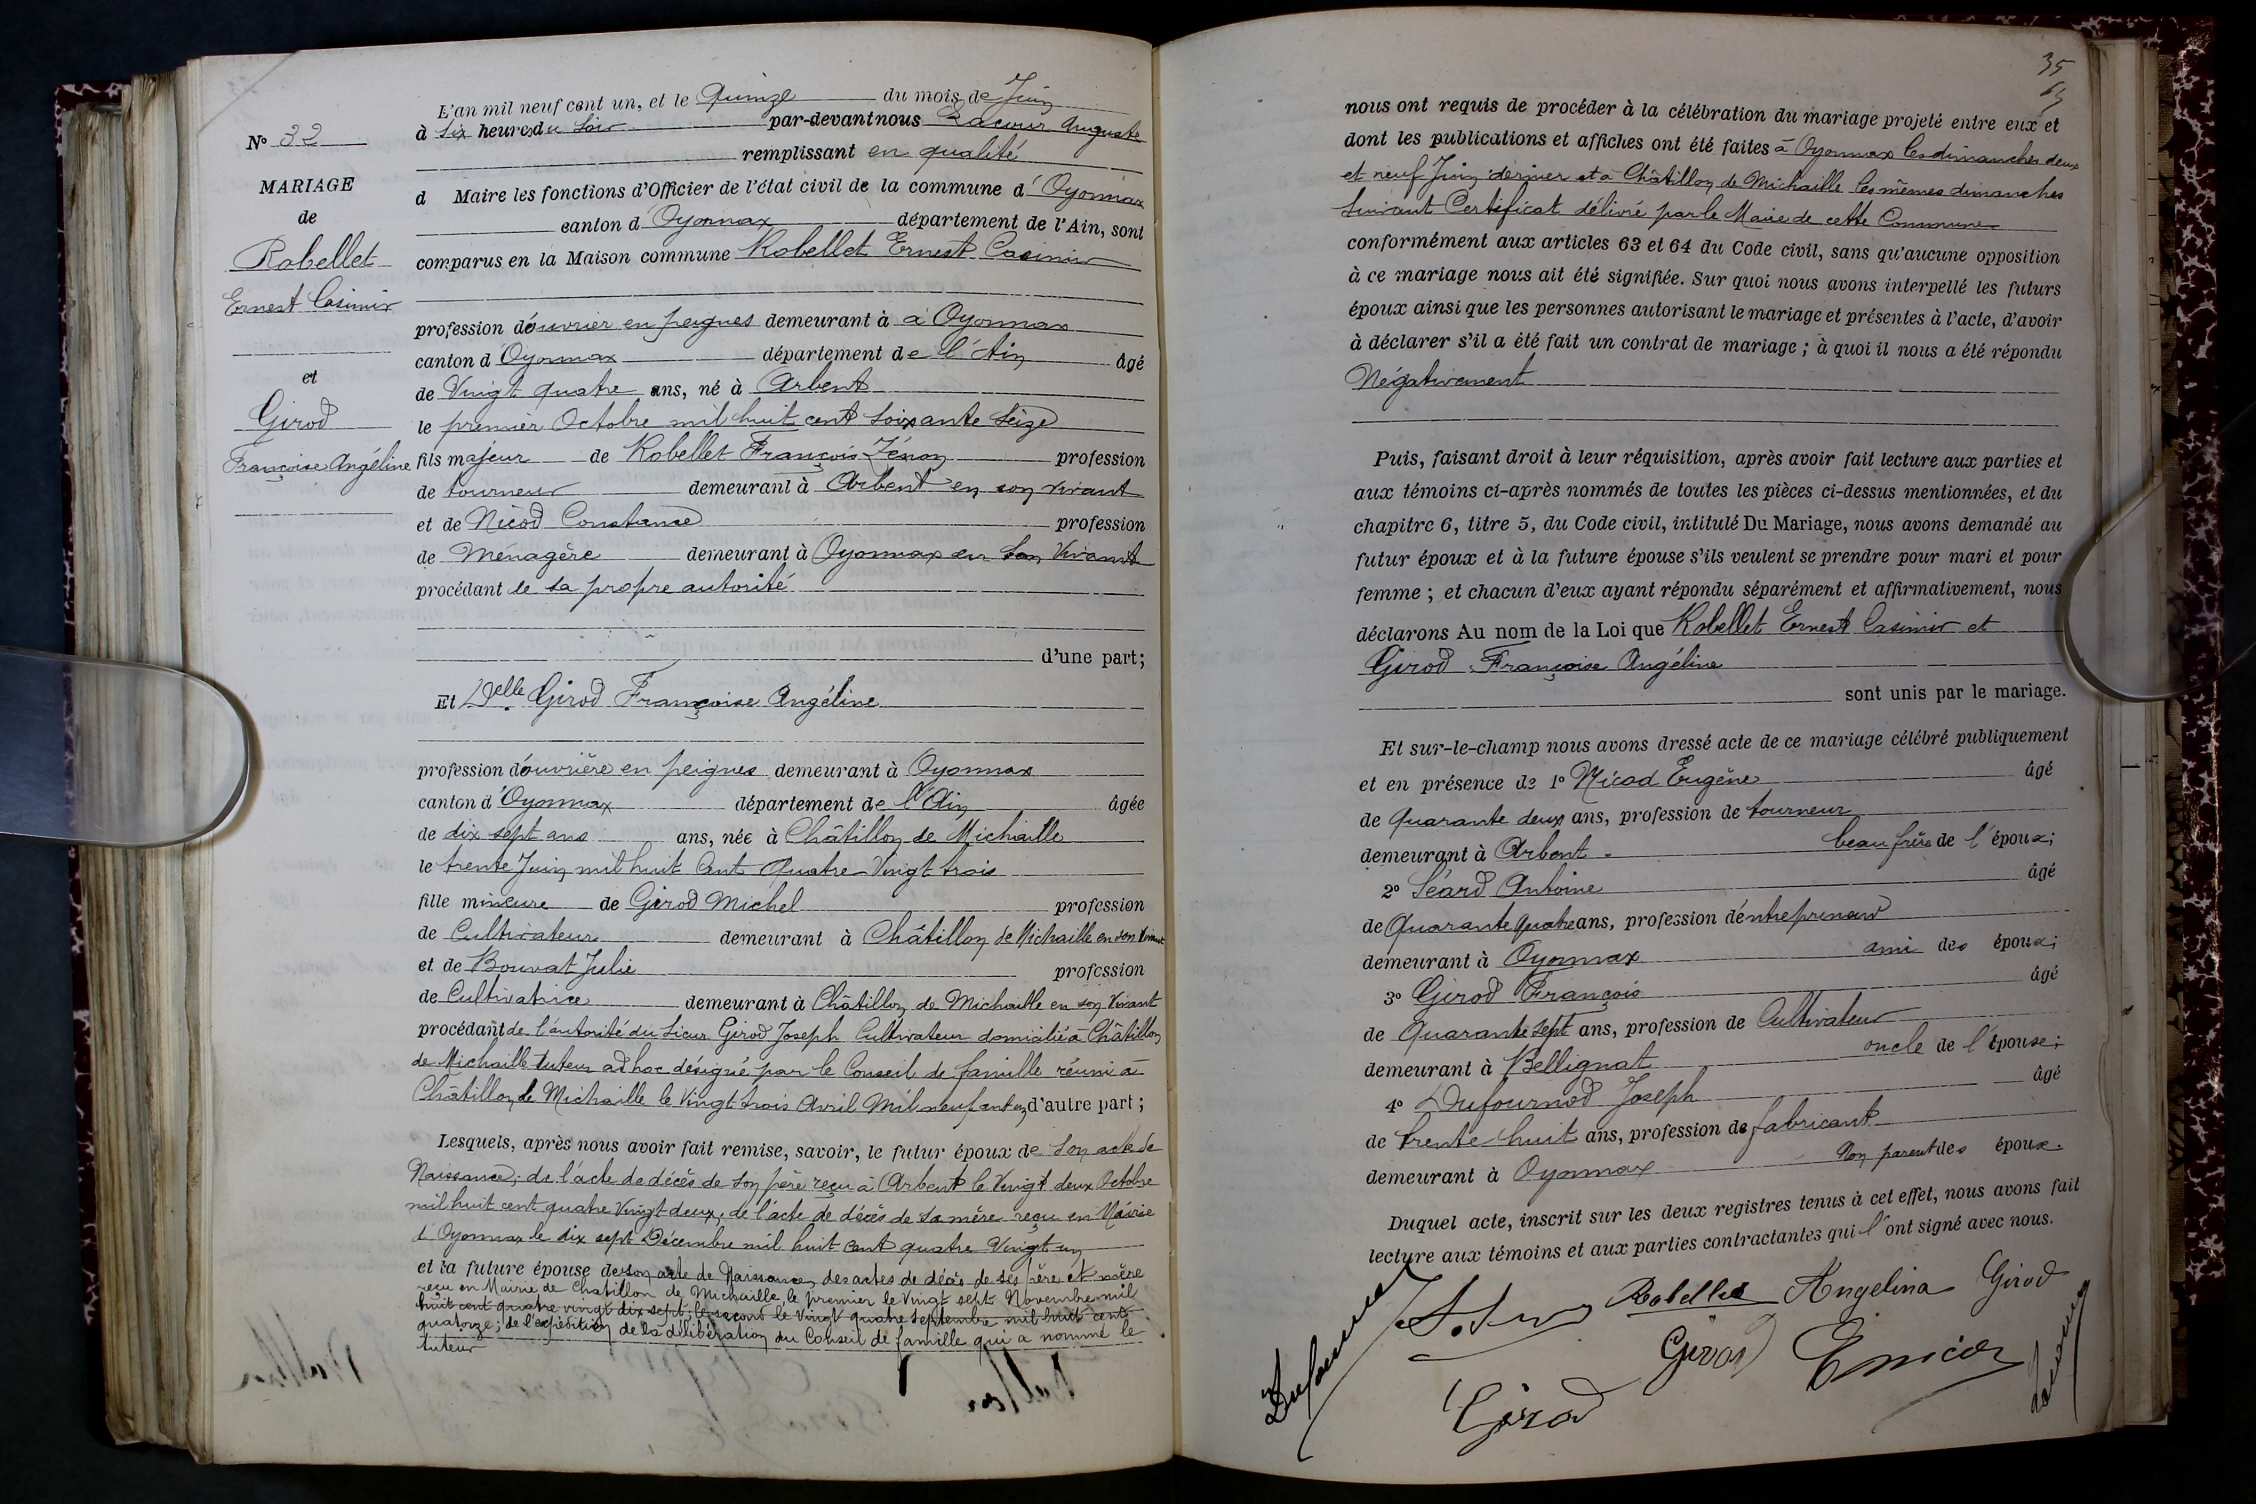 N° 32
MARIAGE
de
Robellet
Ernest Casimir
et
Girod
Françoise Angéline
L'an mil neuf cent un, et le Quinze du mois de Juin
à six heures du soir par-devant nous Lacour Auguste
remplissant en qualité
d Maire les fonctions d'Officier de l'état civil de la commune d'Oyonnax
canton d'Oyonnax département de l'Ain, sont
comparus en la Maison commune Robellet Ernest Casimir
profession d'ouvrier en peignes demeurant à à Oyonnax
canton d'Oyonnax département de l'Ain âgé
de Vingt quatre ans, né à Arbent
le premier Octobre mil huit cent soixante seize
fils majeur de Robellet François Zénon profession
de tourneur demeurant à Arbent en son vivant
et de Nicod Constance profession
de Ménagère demeurant à Oyonnax en son Vivant
procédant de sa propre autorité
d'une part;
Et Delle Girod Françoise Angéline
profession d'ouvrière en peignes demeurant à Oyonnax
canton d'Oyonnax département de l'Ain âgée
de dix sept ans ans, née à Châtillon de Michaille
le trente Juin mil huit Cent Quatre-Vingt trois
fille mineure de Girod Michel profession
de Cultivateur demeurant à Châtillon de Michaille en son Vivant
et de Bouvat Julie profession
de Cultivatrice demeurant à Châtillon de Michaille en son Vivant
procédant de l'autorité du Sieur Girod Joseph Cultivateur domicilié à Châtillon
de Michaille tuteur ad hoc désigné par le Conseil de famille réuni à
Châtillon de Michaille le Vingt trois Avril Mil neuf cent un d'autre part;
Lesquels, après nous avoir fait remise, savoir, le futur époux de son acte de
Naissance, de l'acte de décès de son père reçu à Arbent le Vingt deux Octobre
mil huit cent quatre Vingt deux, de l'acte de décès de sa mère reçu en Mairie
d'Oyonnax le dix sept Décembre mil huit cent quatre Vingt un
et la future épouse de son acte de Naissance, des actes de décès de ses père et mère
reçu en Mairie de Chatillon de Michaille, le premier le Vingt sept Novembre mil
huit cent quatre vingt dix sept; le second le Vingt quatre septembre mil huit cent
quatorze; de l'expédition de la délibération du Conseil de famille qui a nommé le
tuteur
35
nous ont requis de procéder à la célébration du mariage projeté entre eux et
dont les publications et affiches ont été faites à Oyonnax les dimanches deux
et neuf Juin dernier et à Châtillon de Michaille les mêmes dimanches
suivant Certificat délivré par le Maire de cette Commune
conformément aux articles 63 et 64 du Code civil, sans qu'aucune opposition
à ce mariage nous ait été signifiée. Sur quoi nous avons interpellé les futurs
époux ainsi que les personnes autorisant le mariage et présentes à l'acte, d'avoir
à déclarer s'il a été fait un contrat de mariage; à quoi il nous a été répondu
Négativement
Puis, faisant droit à leur réquisition, après avoir fait lecture aux parties et
aux témoins ci-après nommés de toutes les pièces ci-dessus mentionnées, et du
chapitre 6, titre 5, du Code civil, intitulé Du Mariage, nous avons demandé au
futur époux et à la future épouse s'ils veulent se prendre pour mari et pour
femme; et chacun d'eux ayant répondu séparément et affirmativement, nous
déclarons Au nom de la Loi que Robellet Ernest Casimir et
Girod Françoise Angéline
sont unis par le mariage.
Et sur-le-champ nous avons dressé acte de ce mariage célébré publiquement
et en présence de 1° Nicod Eugène âgé
de Quarante deux ans, profession de tourneur
demeurant à Arbent beau frère de l'époux;
2° Séard Antoine âgé
de Quarante quatre ans, profession d'entrepreneur
demeurant à Oyonnax ami des époux;
3° Girod François âgé
de Quarante sept ans, profession de Cultivateur
demeurant à Bellignat oncle de l'épouse;
4° Dufournod Joseph âgé
de trente huit ans, profession de fabricant
demeurant à Oyonnax Non parent des époux.
Duquel acte, inscrit sur les deux registres tenus à cet effet, nous avons fait
lecture aux témoins et aux parties contractantes qui l'ont signé avec nous.
Robellet Angelina Girod
Girod
Girod